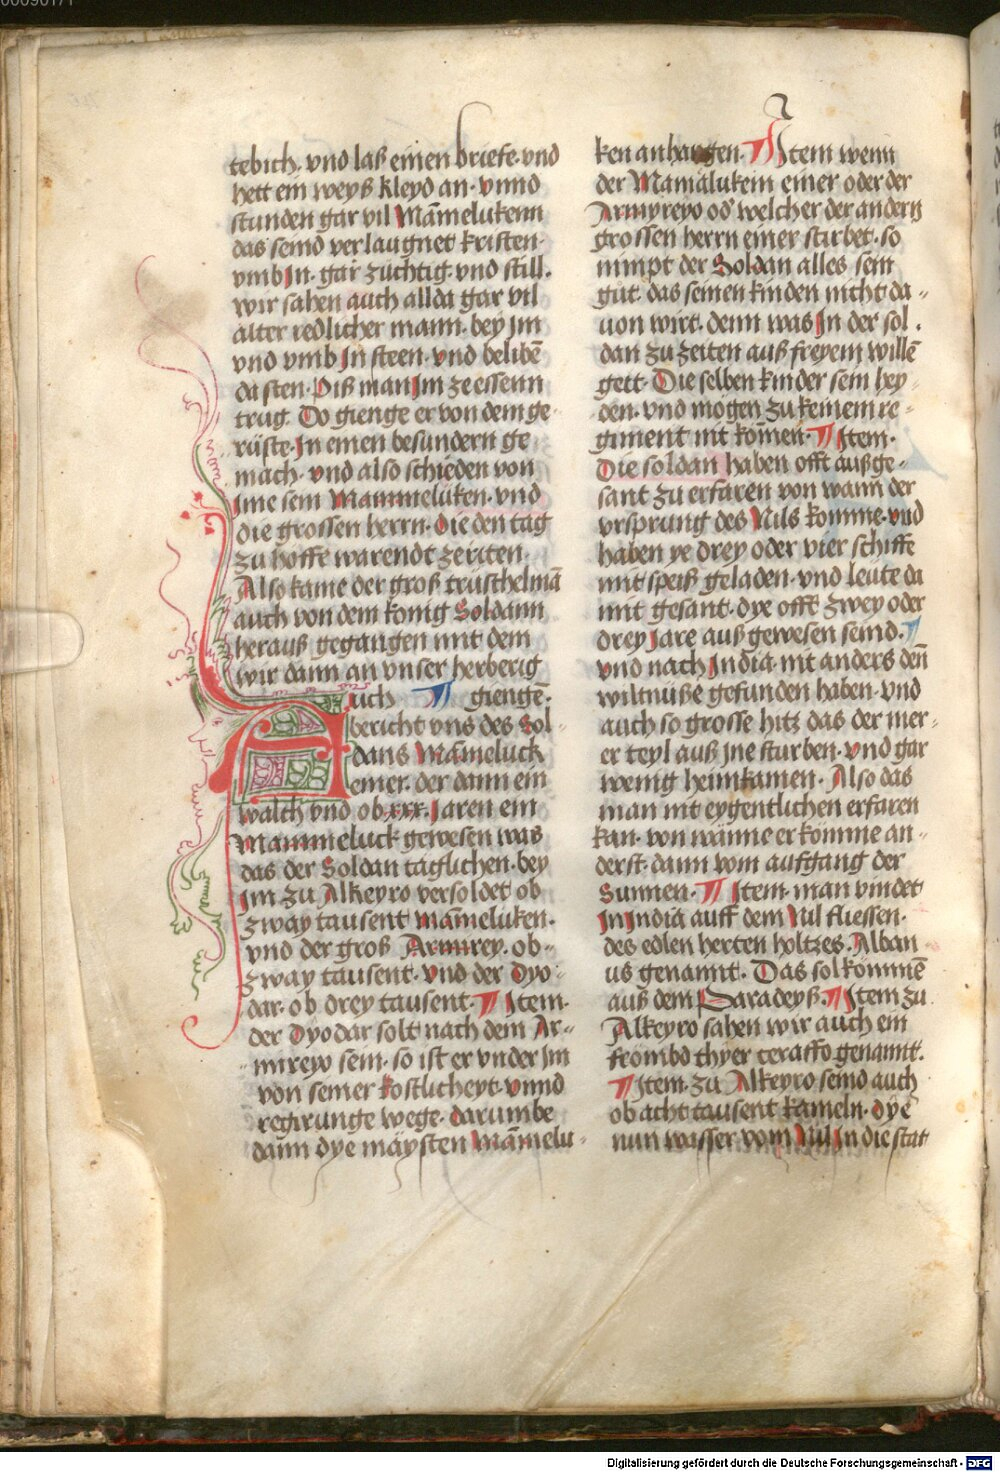 00090171
tebich. vnd laß einen briefe. vnd
hett ein weyß kleyd an. vnnd
stunden gar vil Mām̄elukenn
das seind verlaugnet kristen.
vmb In. gar züchtig. vnd still.
wir sahen auch allda gar vil
alter redlicher mann. bey im
vnd vmb In steen. vnd belibē
da sten. Biß man Im ze essenn
trug. Do gienge er von dem ge
rüste. In einen besundern ge
mach. vnd also schieden von
Ime sein Mammelüken. vnd
die grossen herrn. Die den tag
zu hoffe warendt zeriten.
Also kame der groß trutschelmā
auch von dem konig Soldann
herauß gegangen mit dem
wir dann an vnser herberig
Auch giengē.
bericht vns des Sol-
dans Mām̄eluck
einer. der dann ein
walch vnd ob. xxx. Jaren ein
Mammeluck gewesen was
das der Soldan täglichen. bey
im zu Alkeyro versoldet ob
zway tausent mām̄eluken.
vnd der groß Armirey. ob-
zway tausent. vnd der Dyo-
dar. ob drey tausent. Item.
der Dyodar solt nach dem Ar-
mireyo sein. so ist er vnder Im
von seiner kostlicheyt. vnnd
regirunge wege. darumbe
dann dye maysten Mām̄elu-
ken anhangen. Item wenn
der Mamalukein einer oder der
Armyreyo od' welcher der andern
grossen herrn einer stirbet. so
nimpt der Soldan alles sein
gut. das seinen kinden nicht da-
uon wirt. denn was In der sol.
dan zu zeiten auß freyem willē
gett. Die selben kinder sein hey-
den. vnd mögen zu keinem re-
giment nit kōmen. Item.
Die soldan haben offt außge-
sant zu erfaren von wann der
vrsprung des Nils komme. vnd
haben ye drey oder vier schiffe
mit speiß geladen. vnd leüte da
mit gesant. dye offt zwey oder
drey Jare auß gewesen seind.
vnd nach India. nit anders deñ
wiltnuße gefunden haben. vnd
auch so grosse hitz das der mer-
er teyl auß jne sturben. vnd gar
wenig heimkamen. Also das
man nit eygentlichen erfaren
kan. von wänne er komme an-
derst. dann vom aufgang der
Sunnen. Item. man vindet
In India auff dem Nil fliessen.
des edlen herten holtzes. Alban-
us genannt. Das sol kommē
auß dem Paradeyß. Item zu
Alkeyro sahen wir auch ein
frömbd thyer ceraffo genannt.
Item. zu Alkeyro seind auch
ob acht tausent kameln. dye
nun wasser vom Nil In die stat
Digitalisierung gefördert durch die Deutsche Forschungsgemeinschaft - DFG